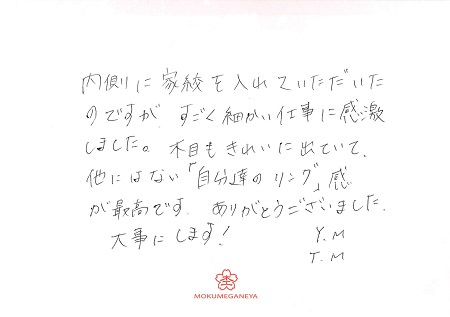 内側に家紋を入れていただいた
のですが すごく細かい仕事に感激
しました。木目もきれいに出ていて、
他にはない「自分達のリング」感
が最高です。ありがとうございました。
大事にします!
Y.M
T.M
MOKUMEGANEYA